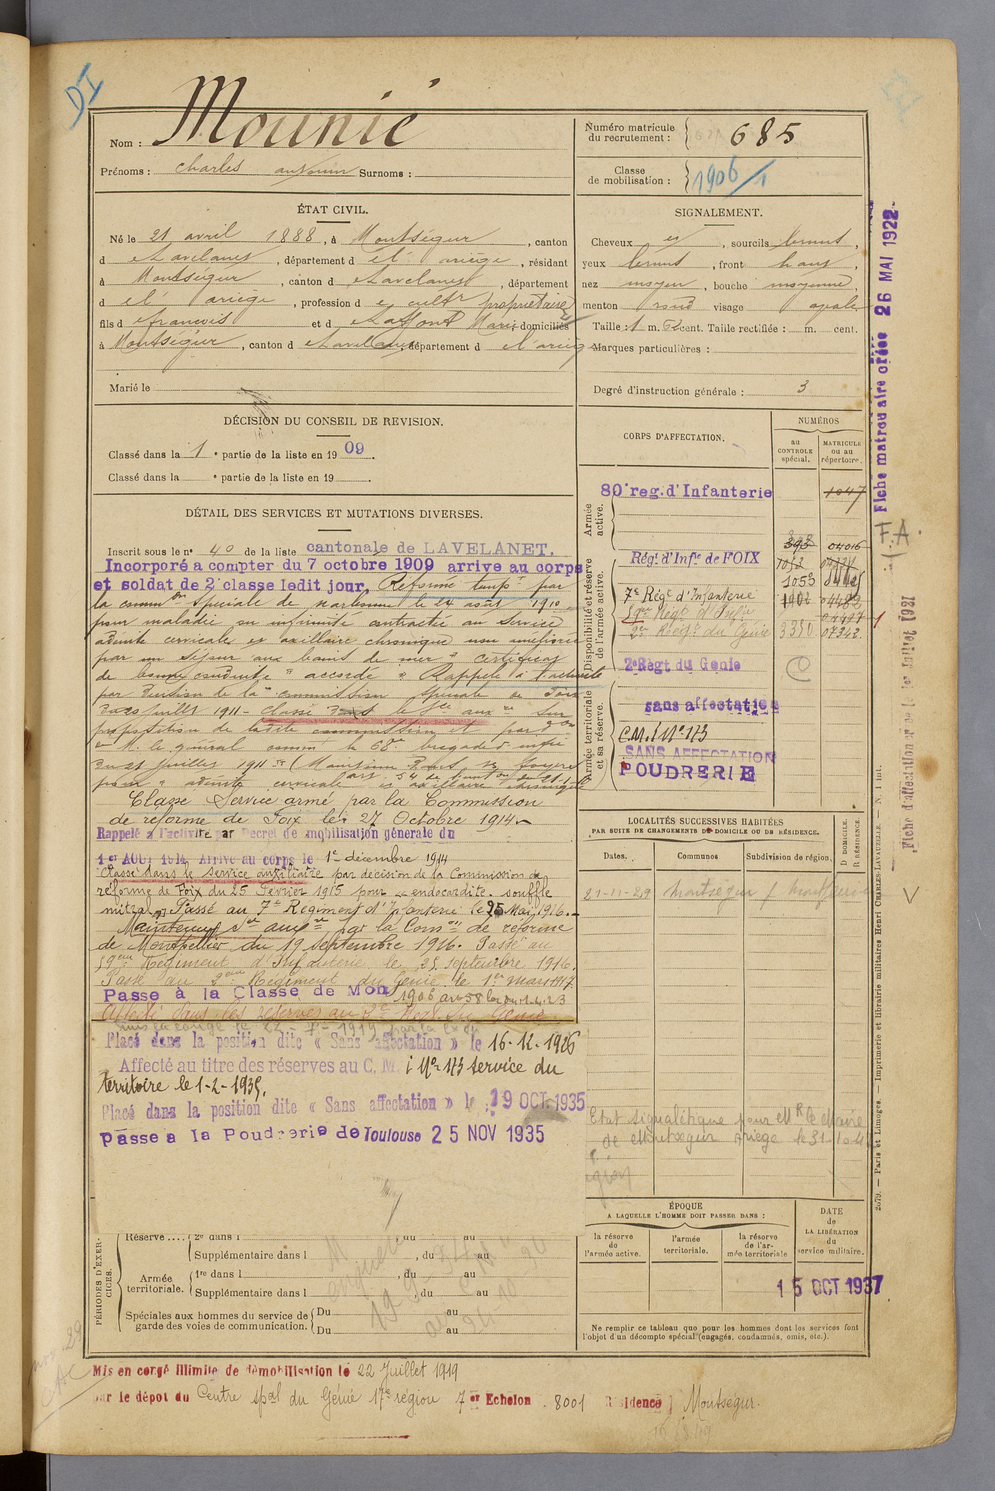 DI
Nom : Mounié
Prénoms : Charles Antonin Surnoms :
Numéro matricule du recrutement : 685
Classe de mobilisation : 1906/1
ÉTAT CIVIL.
Né le 21 avril 1888, à Montségur, canton
d Lavelanet, département d l'ariège, résidant
à Montségur, canton d Lavelanet, département
d l'ariège, profession d cultr propriétaire
fils d francois et d Laffont Marie domiciliés
à Montségur, canton d Lavelanet, département d l'ariège
Marié le
SIGNALEMENT.
Cheveux et, sourcils bruns,
yeux bruns, front haut,
nez moyen, bouche moyenne,
menton rond visage ovale
Taille : 1 m. cent. Taille rectifiée : m. cent.
Marques particulières :
Degré d'instruction générale : 3
DÉCISION DU CONSEIL DE REVISION.
Classé dans la 1 e partie de la liste en 1909.
Classé dans la e partie de la liste en 19 .
DÉTAIL DES SERVICES ET MUTATIONS DIVERSES.
Inscrit sous le n° 40 de la liste cantonale de LAVELANET.
Incorporé a compter du 7 octobre 1909 arrive au corps
et soldat de 2e classe ledit jour, Réformé tempre par
la common spéciale de narbonne le 24 août 1910
pour maladie ou infirmité contractée au service
adénite cervicale et axillaire chronique non améliorée
par un séjour aux bains de mer " certificat
de bonne conduite " accordé " Rappelé à l'activité
par décision de la commission spéciale de Foix
du 20 juillet 1911 - classé dans le sce auxre sur
proposition de ladite commission et par don
de M. le général comm la 68e brigade d'infie
du 21 juillet 1911
pour " adénite cervicale et axillaire
Classé Service armé par la Commission
de réforme de Foix le 27 Octobre 1914
Rappelé à l'activité par Décret de mobilisation générale du
1er AOUT 1914. Arrivé au corps le 1er décembre 1914
Classé dans le service auxiliaire par décision de la Commission de
réforme de Foix du 25 Février 1915 pour endocardite souffle
mitral. Passé au 7e Régiment d'Infanterie le 25 Mai 1916.
Maintenu sce auxre par la Comon de réforme
de Montpellier du 19 septembre 1916. Passé au
59eme Régiment d'Infanterie le 25 septembre 1916.
Passé au 2eme Régiment du Génie le 1er mars 1917
Passé à la Classe de Mob 1906 art 58 loi du 1.4.23
Affecté dans les réserves au 2e Régt du Génie
Placé dans la position dite « Sans affectation » le 16-12-1926
Affecté au titre des réserves au C. M. i No 173 service du
territoire le 1-2-1935.
Placé dans la position dite « Sans affectation » le 19 OCT. 1935
Passé a la Poudrerie de Toulouse 25 NOV 1935
CORPS D'AFFECTATION.
NUMÉROS
au CONTROLE spécial.
MATRICULE ou au répertoire.
Armée active.
80e reg. d'Infanterie 1047
Disponibilité et réserve de l'armée active.
Régt d'Infie de FOIX 393 04016
7e Régt d'Infanterie 1053
59e Régt d'Infie
2e Régt du Génie 3350 07342
Armée territoriale et sa réserve.
2e Régt du Génie
sans affectation
C.M.I No 173
SANS AFFECTATION
POUDRERIE
LOCALITÉS SUCCESSIVES HABITÉES
PAR SUITE DE CHANGEMENTS DE DOMICILE OU DE RÉSIDENCE.
Dates. Communes Subdivision de région. D DOMICILE. R RÉSIDENCE.
21-11-29 Montségur
Etat signalétique pour Mr le Maire
de Montségur Ariège le 31-
ÉPOQUE
A LAQUELLE L'HOMME DOIT PASSER DANS :
la réserve de l'armée active.
l'armée territoriale.
la réserve de l'armée territoriale
DATE de LA LIBÉRATION du service militaire.
15 OCT 1937
Ne remplir ce tableau que pour les hommes dont les services font
l'objet d'un décompte spécial (engagés, condamnés, omis, etc.).
PÉRIODES D'EXERCICES.
Réserve .... 2e dans l , du au
Supplémentaire dans l , du au
Armée territoriale. 1re dans l , du au
Supplémentaire dans l , du au
Spéciales aux hommes du service de garde des voies de communication. Du au
Du au
Mis en congé illimité de démobilisation le 22 Juillet 1919
par le dépôt du Centre spal du Génie 17e région 7e Echelon . 8001 Résidence Montségur.
Fiche matriculaire créée 26 MAI 1922
F.A.
Fiche d'affectation créée le 1er Juillet 1921
2679. — Paris et Limoges. — Imprimerie et librairie militaires Henri CHARLES-LAVAUZELLE. — N. 1 int.